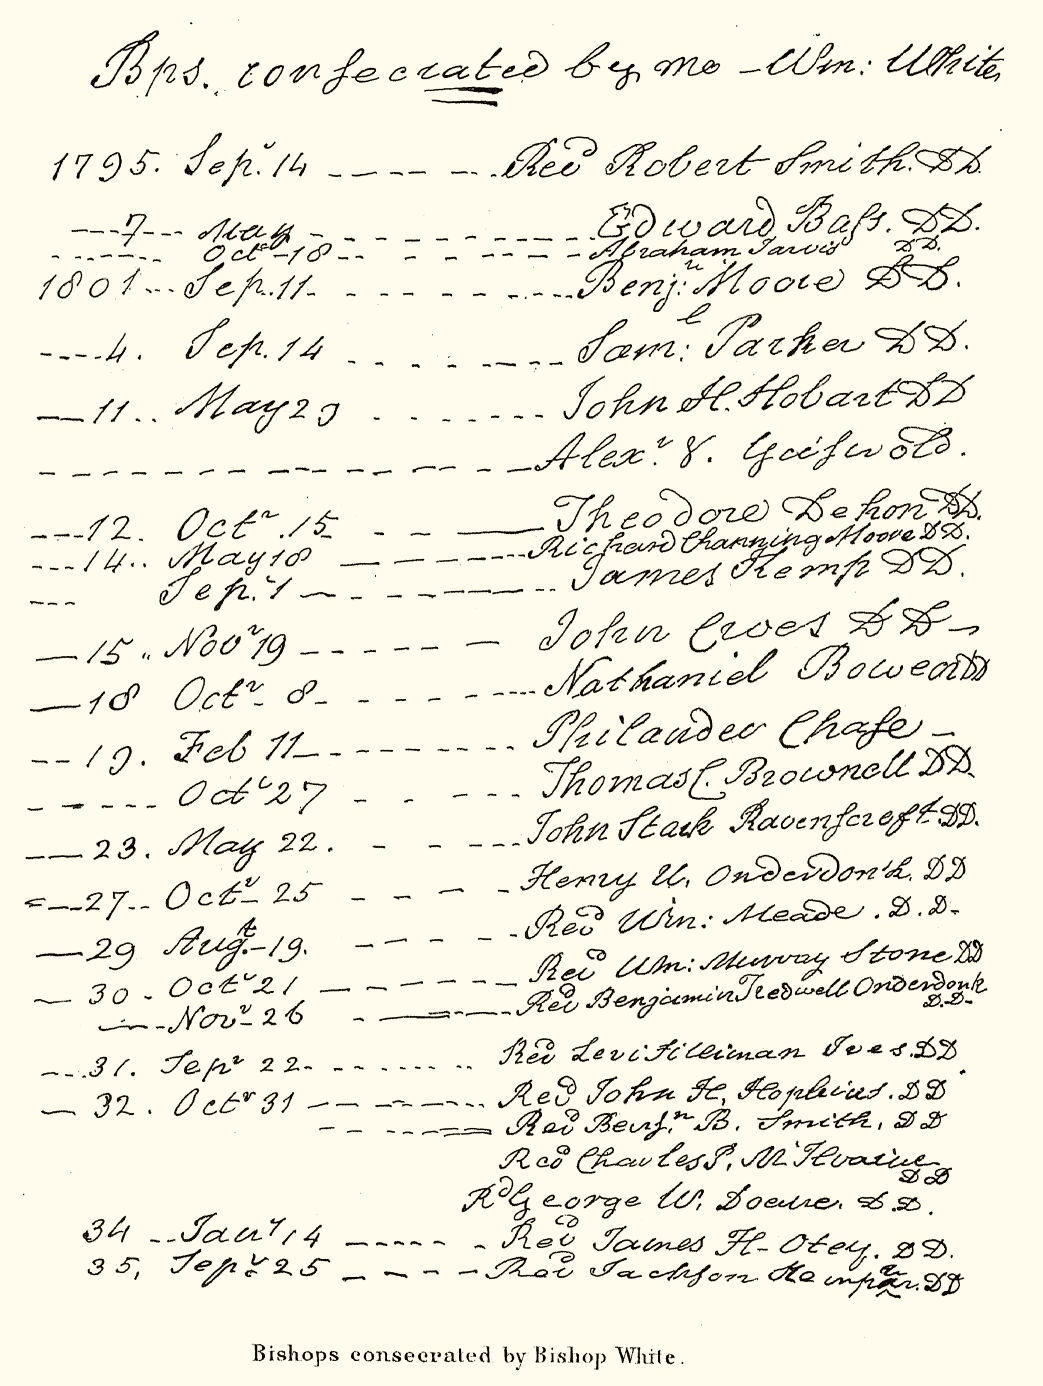 Bps. consecrated by me – Wm: White
1795. Sepr. 14 – – – – – – Revd Robert Smith. DD.
– – – 7 – – – May – – – – – – – – – Edward Baſs. DD.
– – – – – – – Octr – 18 – – – – – – – Abraham Jarvis DD.
1801 – – – Sep. 11 – – – – – – – – – Benjn: Moore DD.
– – – – 4. Sep. 14 – – – – – – – Saml: Parker DD.
— 11 . . May 29 – – – – – – – John H. Hobart DD
– – – – – – – – – – – – – – – Alexr. V. Griſwold.
– – – 12. Octr. 15 – – — Theodore Dehon DD.
– – – 14 . . May 18 — – – – – – – Richard Channing Moore DD.
– – – Sepr. 1 – – – – – – – – James Kemp DD.
— 15 . . Novr 19 – – – – – – John Croes DD –
— 18 Octr. 8 – – – – – – – – Nathaniel Bowen DD
– – 19. Feb 11 – – – – – – – – – Philander Chaſe –
– – – – – – Octr 27 – – – – – Thomas C. Brownell DD.
– — 23. May 22. – – – – – John Stark Ravenſcroft DD.
– — 27 . . Octr – 25 – – – – Henry U. Onderdonk. DD
— 29 Augt. – 19. – – – – – – Revd Wm: Meade. D.D.
— 30 – Octr 21 — – – – – – – Revd Wm: Murray Stone DD
— – Novr – 26 – — – – – – Revd Benjamin Tredwell Onderdonk
D.D.
– – . 31. Sepr 22 – – – – – – – – Revd Levi Silliman Ives. DD
— 32. Octr 31 – – – – – – – – Revd John H. Hopkins. DD
– – – – – — Revd Benjn. B. Smith, DD
Revd Charles P. McIlvaine
DD
Rd George W. Doane. DD.
34 – – Jany 14 – – – – – – Revd James H – Otey. DD.
35, Sepr. 25 – – – – Revd Jackſon Kemper. DD
Bishops consecrated by Bishop White.